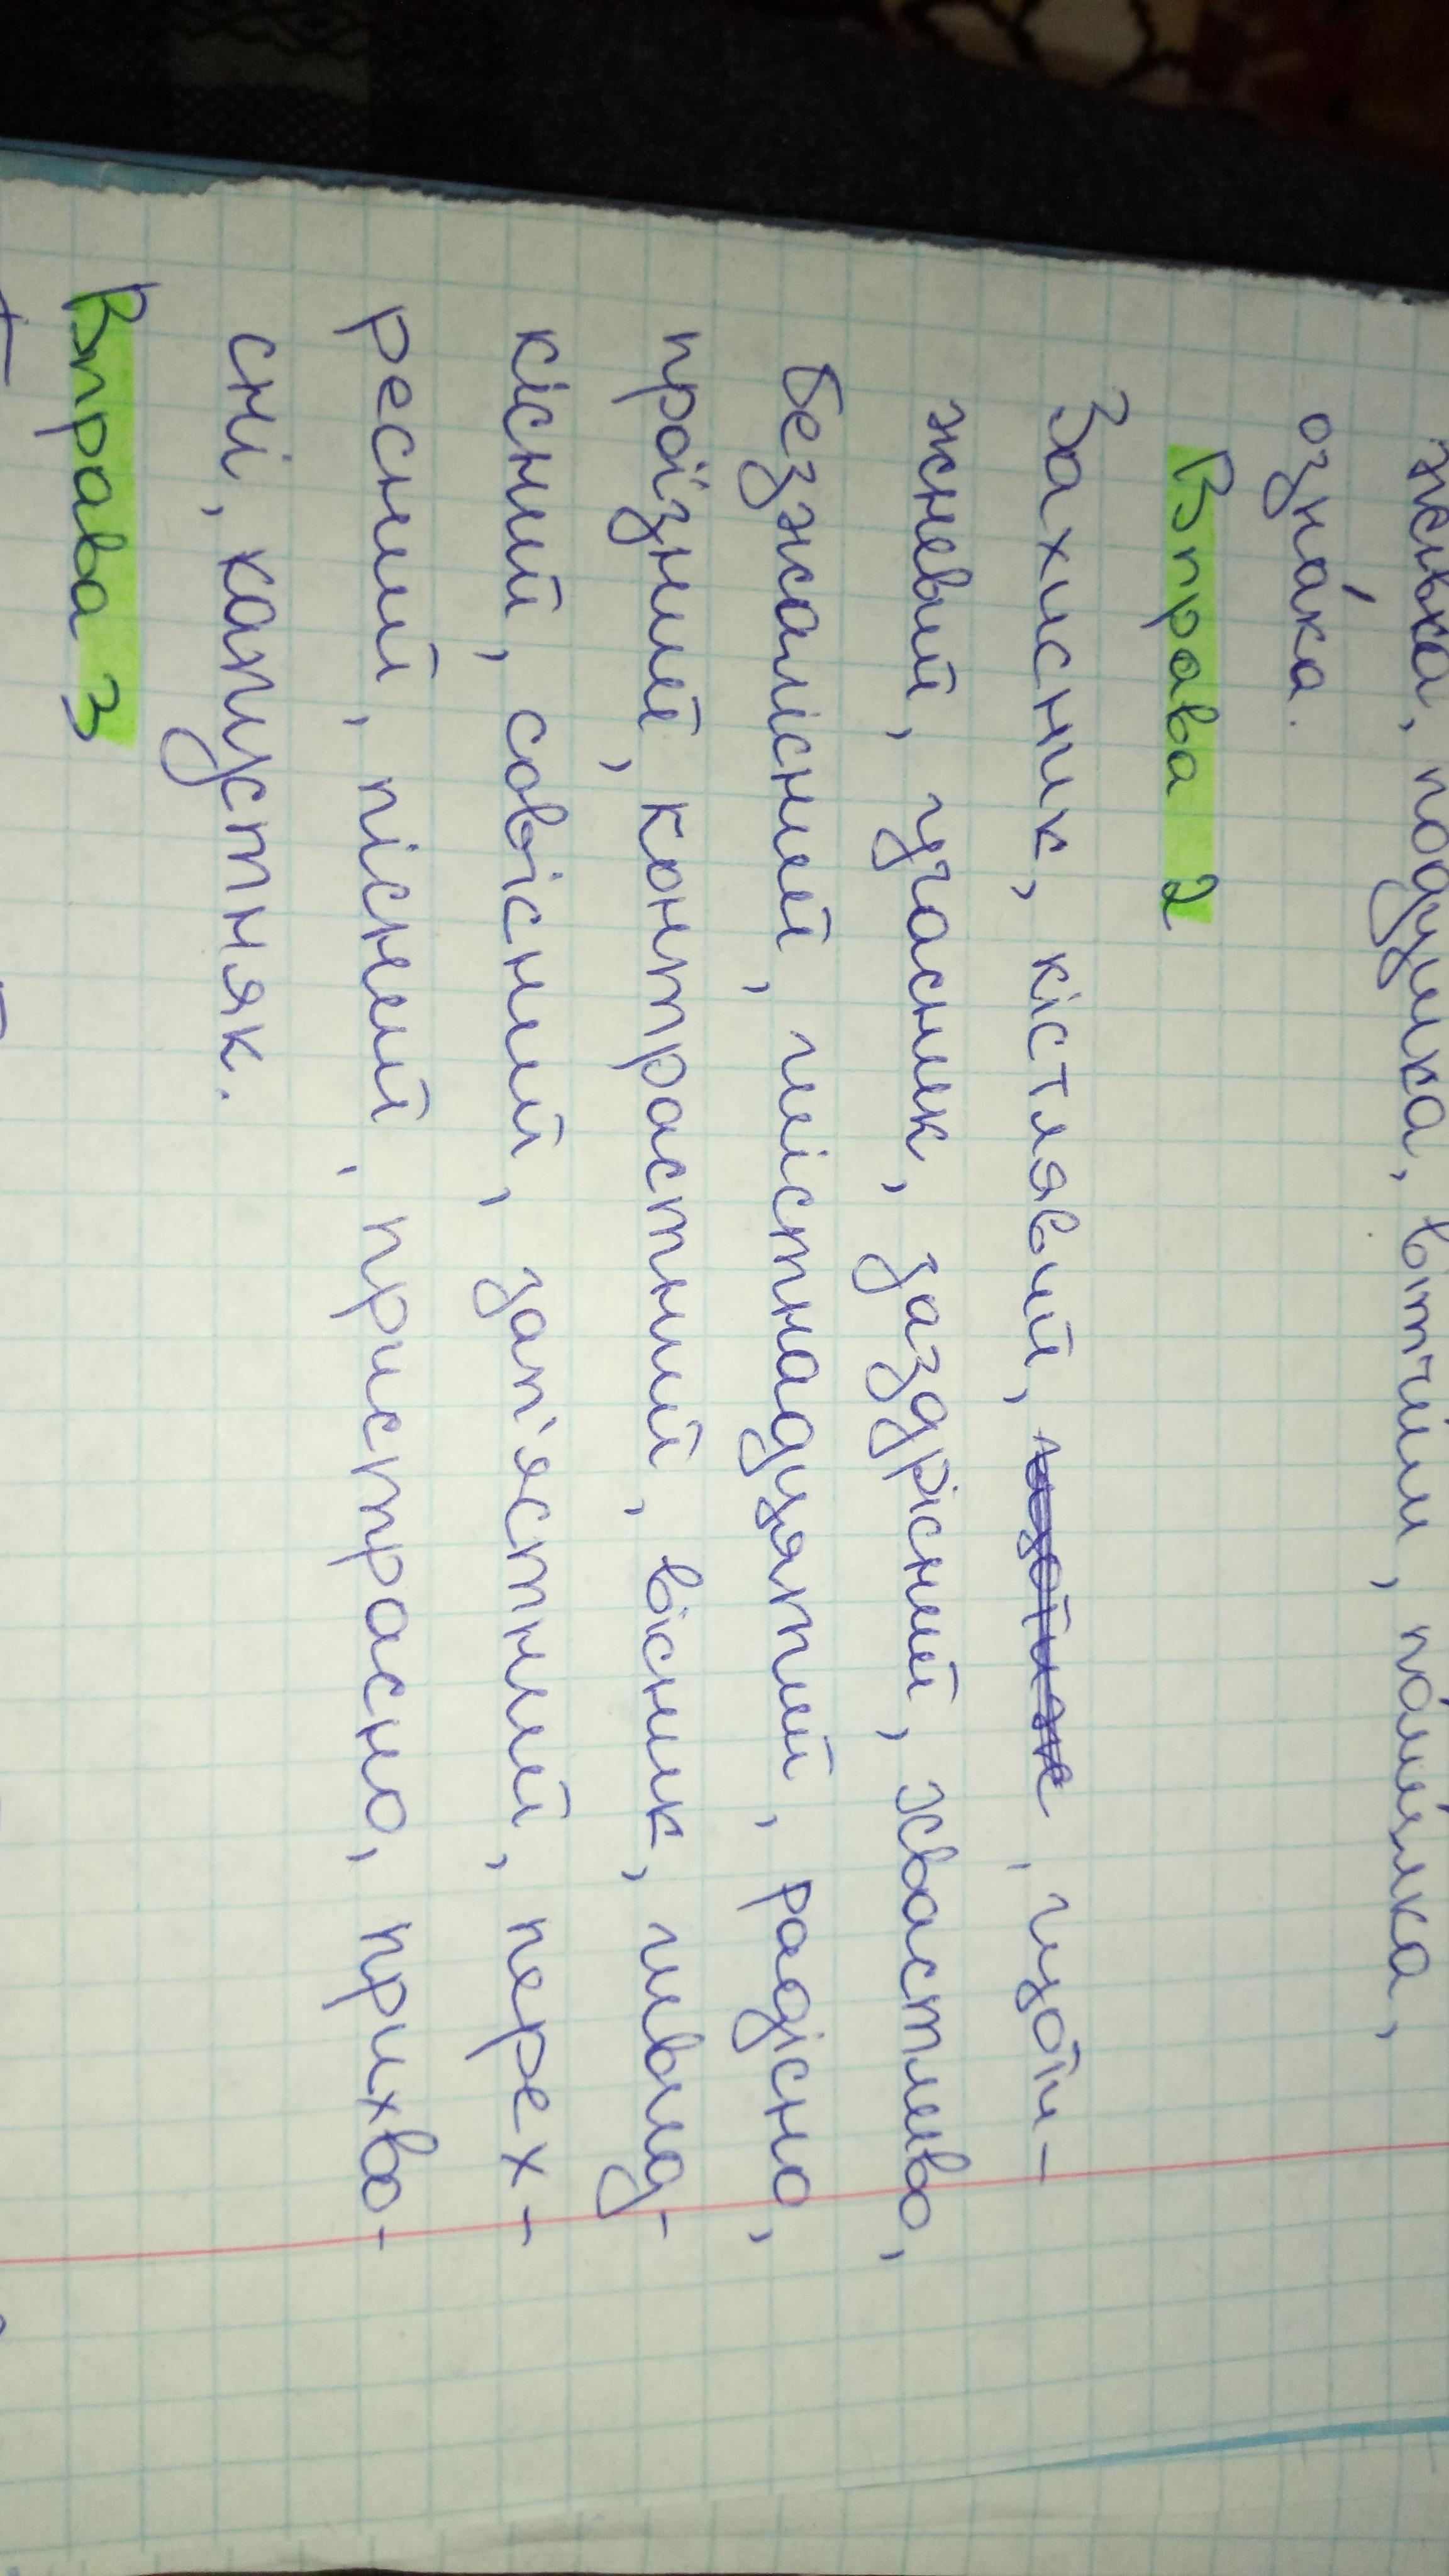 подушка, вітчим, по́милка,
озна́ка.
Вправа 2
Захисник, кістлявий, , щоти-
жневий, учасник, заздрісний, хвастливо,
безжалісний, шістнадцятий, радісно,
проїзний, контрастний, вісник, швид-
кісний, совісний, зап'ястний, перех-
ресний, пісний, пристрасно, прихво-
сні, капустняк.
Вправа 3